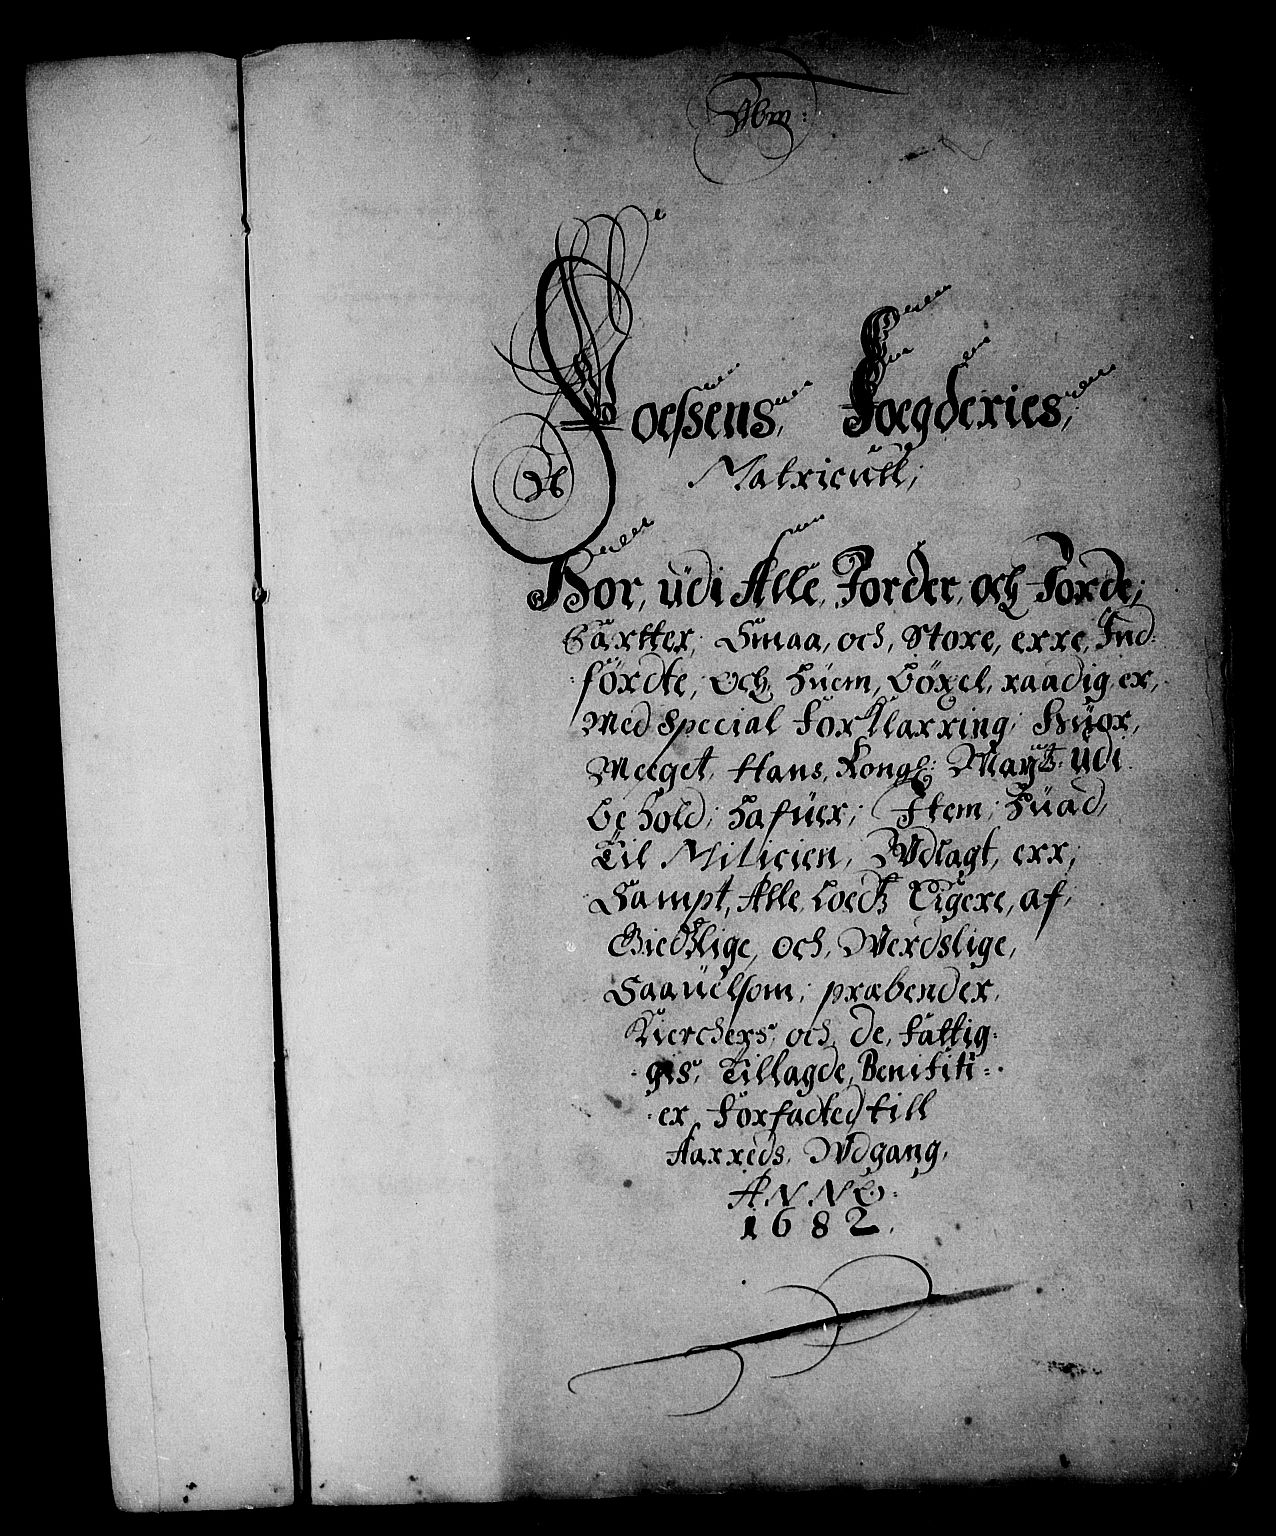 Foessens, Foegderies,
Matricull;
Hor, udi Alle, Jorder, och Jorde,
Partter, Smaa, och, Store, erre, Ind-
förte, och, huem, böxel, raadig, er,
Med Special Forklarring, Huor,
Meeget, Hans, Kongl: Maytz: udi
behold; hafuer; Item; huad,
Til Milicien, Udlagt, err,
Sampt, Alle, Loedz Eigere, af,
Giedzlige, och, Werdslige,
Saauelsom; præbender,
Kierchers, och, de, fattig-
ges, Tillagde, Benifiti-
er, Forfacted till
Aarreds, Udgang,
ANNO:
1682.